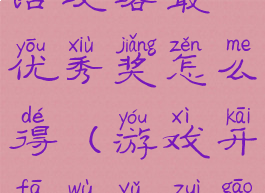 最
yōu xiù jiǎng zěn me
优秀奖怎么
dé yóu xì kāi
得（游戏开
fā wù yǔ zuì gāo